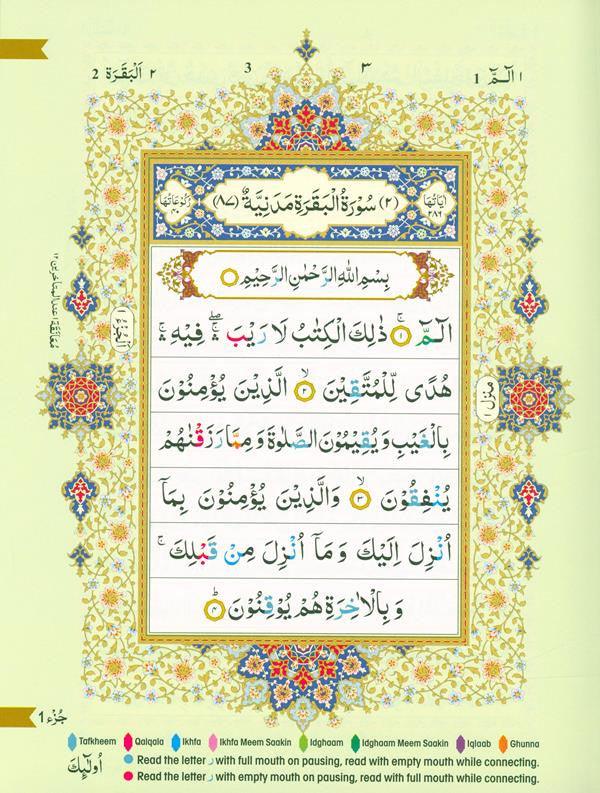 2 ٢ اَلْبَقَرَة
3 ٣
1 الٓمّٓ ١
اٰيَاتُهَا ٢٨٦
(٢) سُوْرَةُ الْبَقَرَةِ مَدَنِيَّةٌ (٨٧)
رُكُوْعَاتُهَا ٤٠
بِسْمِ اللهِ الرَّحْمٰنِ الرَّحِيْمِ
الٓمّٓ ۚ ١ ذٰلِكَ الْكِتٰبُ لَا رَيْبَ ۛۖ فِيْهِ ۛۚ
هُدًى لِّلْمُتَّقِيْنَ ۙ ٢ الَّذِيْنَ يُؤْمِنُوْنَ
بِالْغَيْبِ وَيُقِيْمُوْنَ الصَّلٰوةَ وَمِمَّا رَزَقْنٰهُمْ
يُنْفِقُوْنَ ۙ ٣ وَالَّذِيْنَ يُؤْمِنُوْنَ بِمَآ
اُنْزِلَ اِلَيْكَ وَمَآ اُنْزِلَ مِنْ قَبْلِكَ ۚ
وَبِالْاٰخِرَةِ هُمْ يُوْقِنُوْنَ ؕ ٤
مُعَانَقَة ١ عند المتاخرين ١٢
اَلْجُزْءُ ١
منزل ١
1 جُزْء
Tafkheem Qalqala Ikhfa Ikhfa Meem Saakin Idghaam Idghaam Meem Saakin Iqlaab Ghunna
Read the letter ر with full mouth on pausing, read with empty mouth while connecting.
Read the letter ر with empty mouth on pausing, read with full mouth while connecting.
اُولٰٓئِكَ